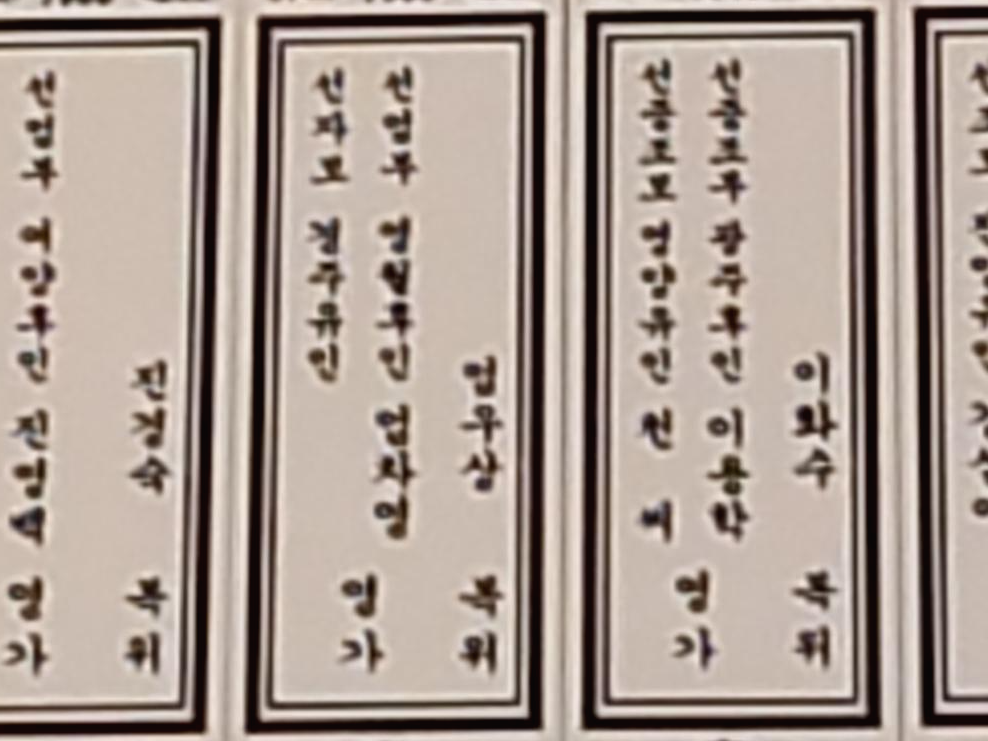 이화수 복위
선증조부 광주후인 이용학
선증조모 영양유인 천 씨
영가
엄무상 복위
선엄부 영월후인 엄차영
선자모 경주유인
영가
진경숙 복위
선엄부 여양후인 영가